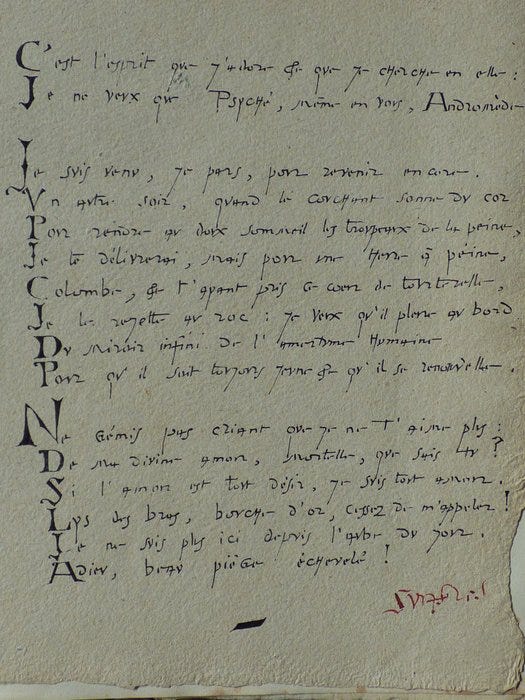 C'est l'esprit que j'adore & que je cherche en elle :
Je ne veux que Psyché, même en vous, Andromède
Je suis venu, je pars, pour revenir encore.
Un autre soir, quand le couchant sonne du cor
Pour rendre au doux sommeil les troupeaux de la peine,
Je te délivrerai, mais pour une heure à peine,
Colombe, & t'ayant pris ce coeur de tourterelle,
Je le rejette au roc : je veux qu'il pleure au bord
Du miroir infini de l'amertume humaine
Pour qu'il soit toujours jeune & qu'il se renouvelle.
Ne gémis pas criant que je ne t'aime plus :
De ma divine amour, mortelle, que sais tu ?
Si l'amour est tout désir, je suis tout amour.
Lys des bras, bouche d'or, cessez de m'appeler !
Je ne suis plus ici depuis l'aube du jour.
Adieu, beau piège échevelé !
Suarès